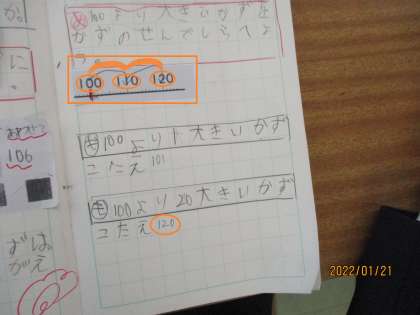 か。
に。
106
ずは。
がえ
め 100より大きいかずを
かずのせんでしらべよ
う。
100 110 120
も 100より1大きいかず
こたえ 101
も 100より20大きいかず
こたえ 120
2022/01/21